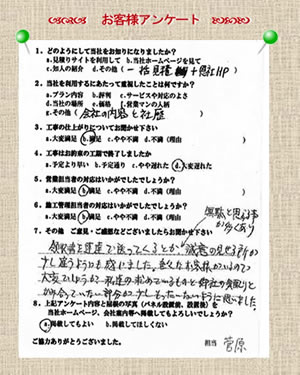 お客様アンケート
1．どのようにして当社をお知りになりましたか？
a.見積りサイトを利用して　b.当社ホームページを見て
c.知人の紹介　d.その他（一括見積　＋貴社HP）
2．当社を利用するにあたって重視したことは何ですか？
a.プラン内容　b.評判　c.サービスや対応のよさ
d.当社の場所　e.価格　f.営業マンの人柄
g.その他（会社の内容と社歴）
3．工事の仕上がりについてお聞かせ下さい
a.大変満足　b.満足　c.やや不満　d.不満（理由　）
4．工事はお約束の工期で終了しましたか
a.予定より早い　b.予定通り　c.やや遅れた　d.大変遅れた
5．営業担当者の対応はいかがでしたでしょうか？
a.大変満足　b.満足　c.やや不満　d.不満（理由　）
6．施工管理担当者の対応はいかがでしたでしょうか？
a.大変満足　b.満足　c.やや不満　d.不満（理由　）
7．その他　ご意見・ご感想などございましたらお聞かせ下さい
無駄と思う事が多くあり
領収書を速達で送ってくるとか、誠意の見せる所が
少し違うようにも感じました。色々なお客様がいるので
大変でしょうが、私達の求めているものと弊社の気配りと
がかみあっていない部分が少しもったいないように思いました。
8．上記アンケート内容と屋根の写真（パネル設置前、設置後）を
当社ホームページ、会社案内等へ掲載してもよろしいでしょうか？
a.掲載してもよい　b.掲載してほしくない
ご協力ありがとうございました。
担当　菅原